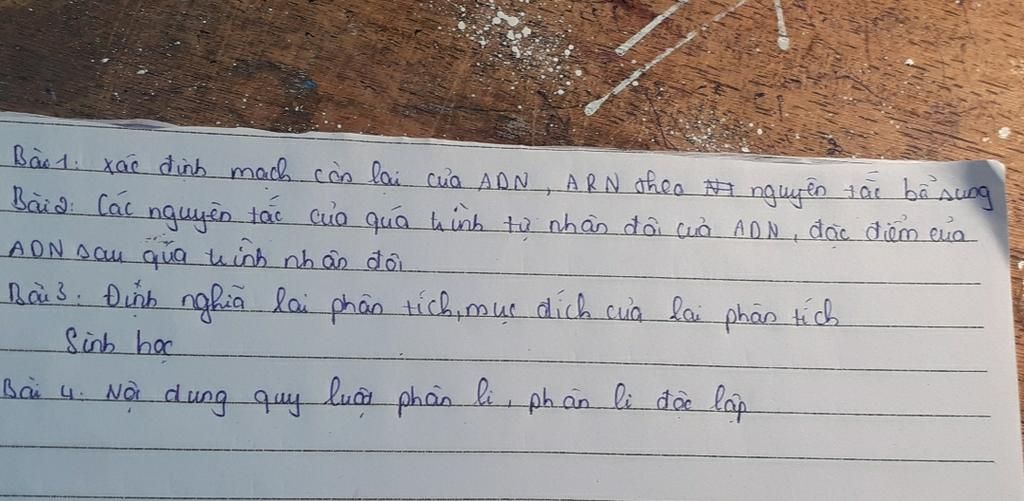 Bài 1: Xác định mạch còn lại của ADN, ARN theo nguyên tắc bổ sung
Bài 2: Các nguyên tắc của quá trình tự nhân đôi của ADN, đặc điểm của
ADN sau quá trình nhân đôi
Bài 3: Định nghĩa lai phân tích, mục đích của lai phân tích
Sinh học
Bài 4: Nội dung quy luật phân li, phân li độc lập